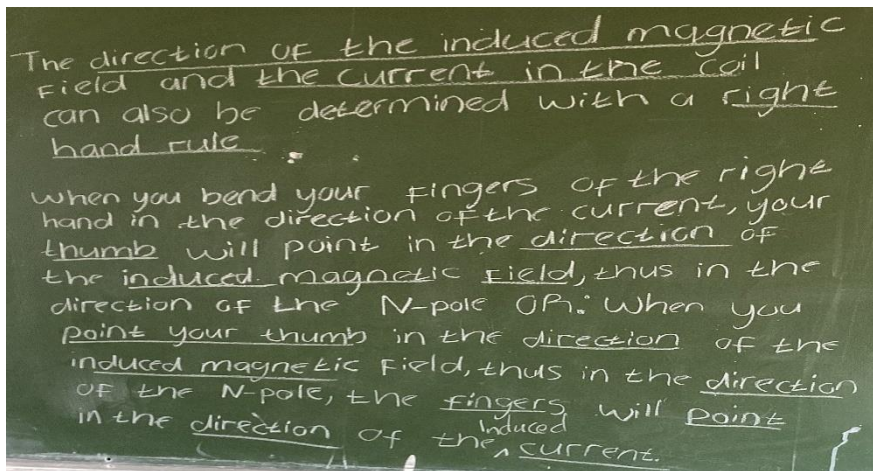 The direction of the induced magnetic
field and the current in the coil
can also be determined with a right
hand rule
When you bend your fingers of the right
hand in the direction of the current, your
thumb will point in the direction of
the induced magnetic field, thus in the
direction of the N-pole OR: When you
point your thumb in the direction of the
induced magnetic field, thus in the direction
of the N-pole, the fingers will point
in the direction of the ^ Induced current.